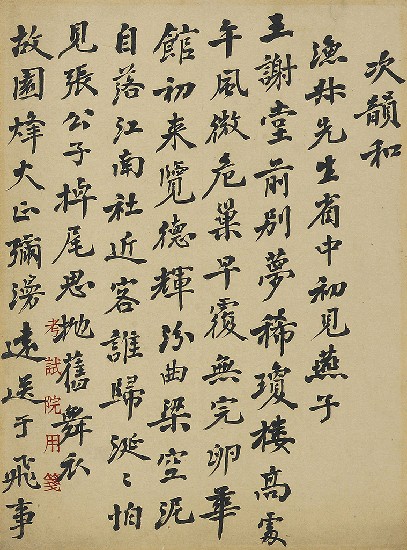 次韻和
漁叔先生省中初見燕子
王謝堂前別夢稀瓊樓高處
午風微危巢早覆無完卵華
館初來覽德輝汾曲梁空泥
自落江南社近客誰歸涎〻怕
見張公子掉尾思拋舊舞衣
故園烽火正彌遠送于飛事
考試院用箋